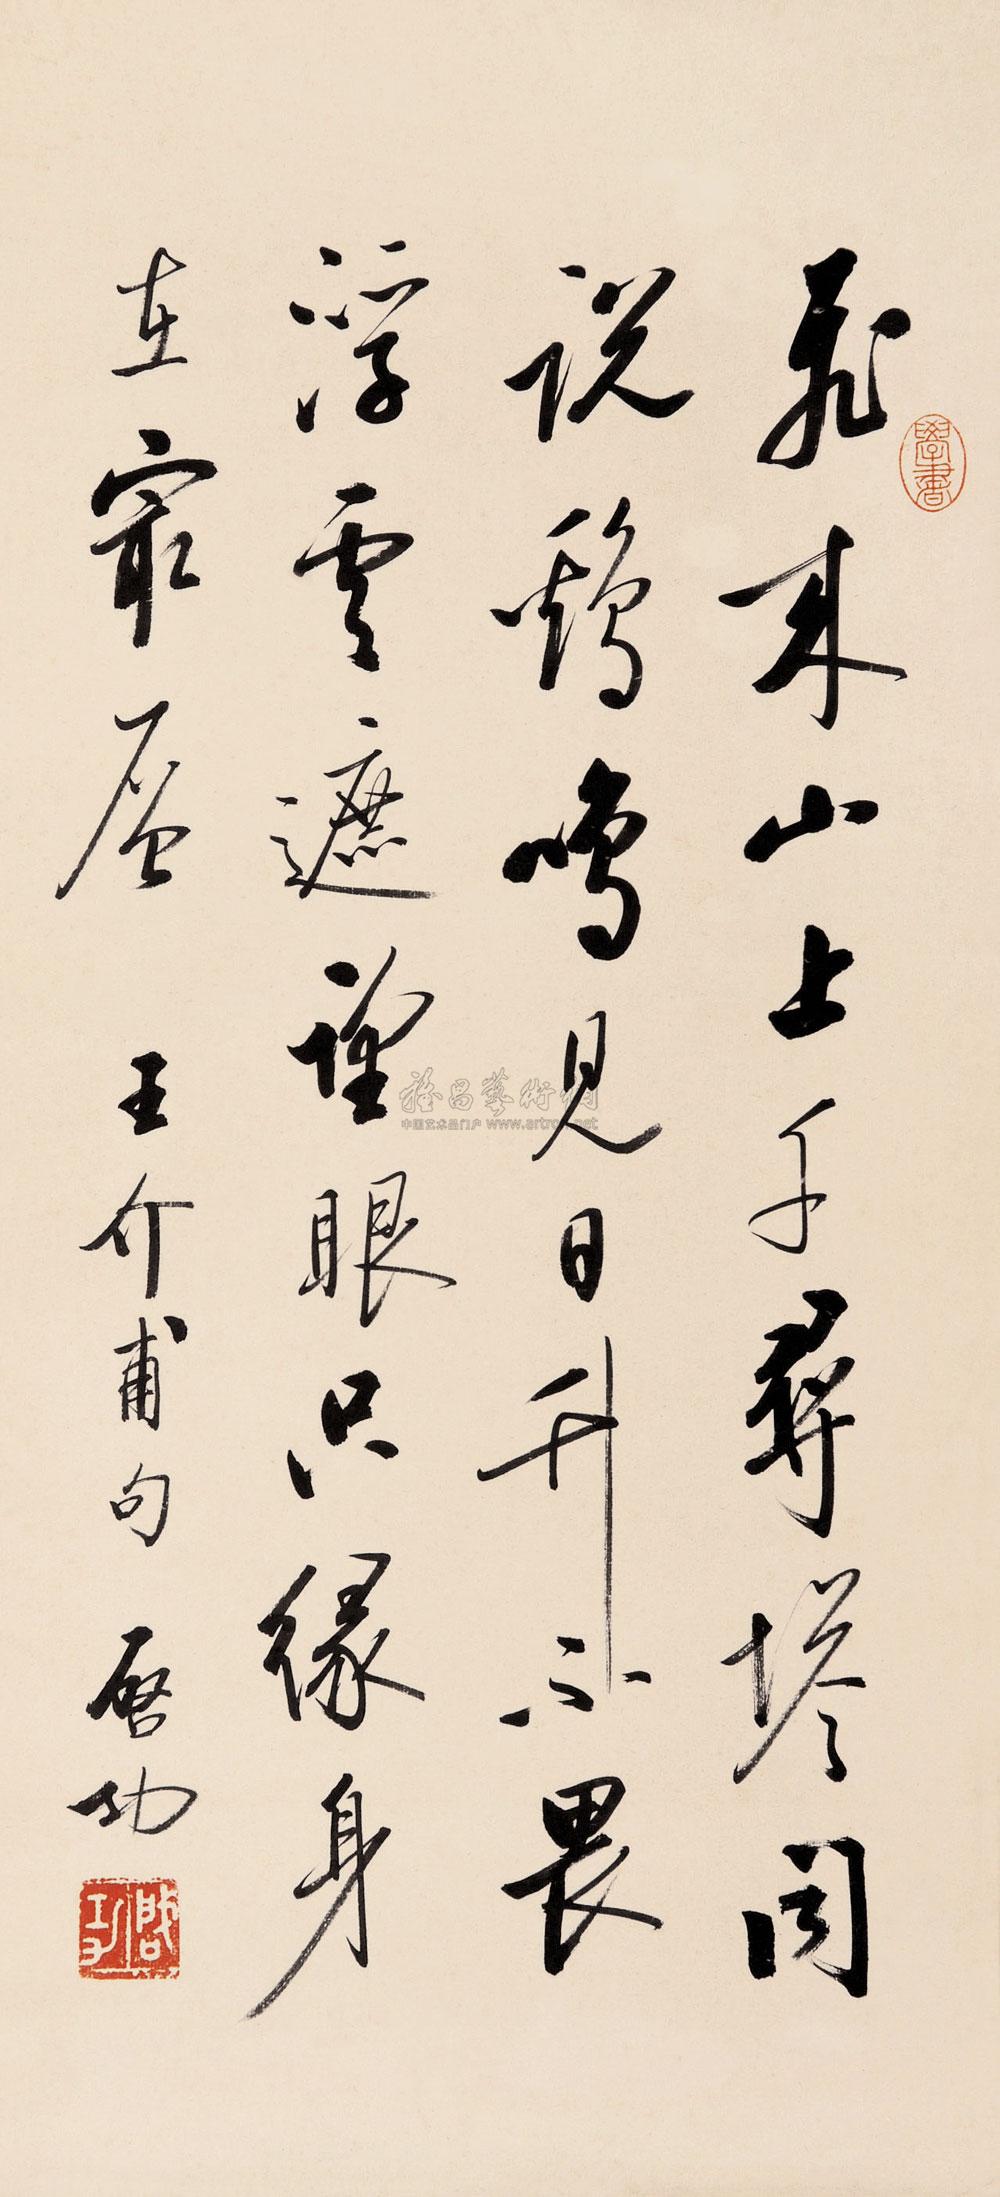 飛来山上千尋塔聞
説鷄鳴見日升不畏
浮雲遮望眼只緣身
在最層 王介甫句 啓功
學書
啟功
雅昌藝術網
中国艺术品门户 www.artron.net